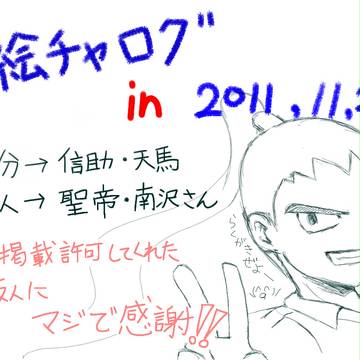 絵チャログ
in 2011.11.
分→信助・天馬
人→聖帝・南沢さん
らくがきだぜよ
掲載許可してくれた
友人に
マジで感謝!!